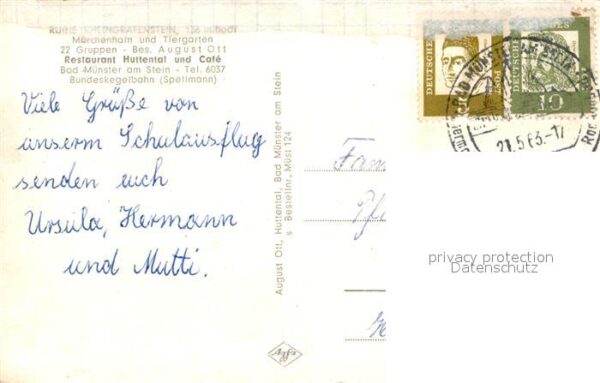 RUINE RHEINGRAFENSTEIN, 136
Märchenhain und Tiergarten
22 Gruppen - Bes. August Ott
Restaurant Huttental und Café
Bad-Münster am Stein - Tel. 6037
Bundeskegelbahn (Spellmann)
Viele Grüße von
unserm Schulausflug
senden euch
Ursula, Hermann
und Mutti.
August Ott, Huttental, Bad Münster am Stein
Bestellnr. Müst 124
Agfa
Fam
DEUTSCHE
POST
5
DEUTSCHE
10
BAD MÜNSTER AM STEIN
21.5.63.-17
privacy protection
Datenschutz